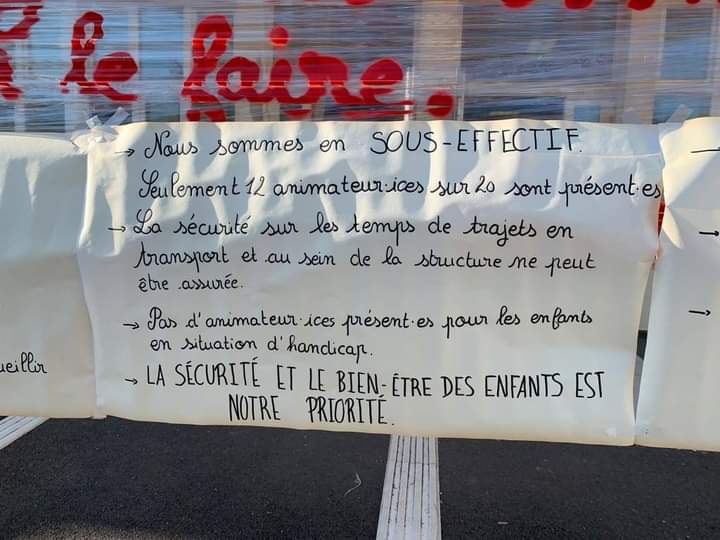 le faire.
→ Nous sommes en SOUS-EFFECTIF.
Seulement 12 animateur·ices sur 20 sont présent·es
→ La sécurité sur les temps de trajets en
transport et au sein de la structure ne peut
être assurée.
→ Pas d'animateur·ices présent·es pour les enfants
en situation d'handicap.
→ LA SÉCURITÉ ET LE BIEN-ÊTRE DES ENFANTS EST
NOTRE PRIORITÉ.
ueillir